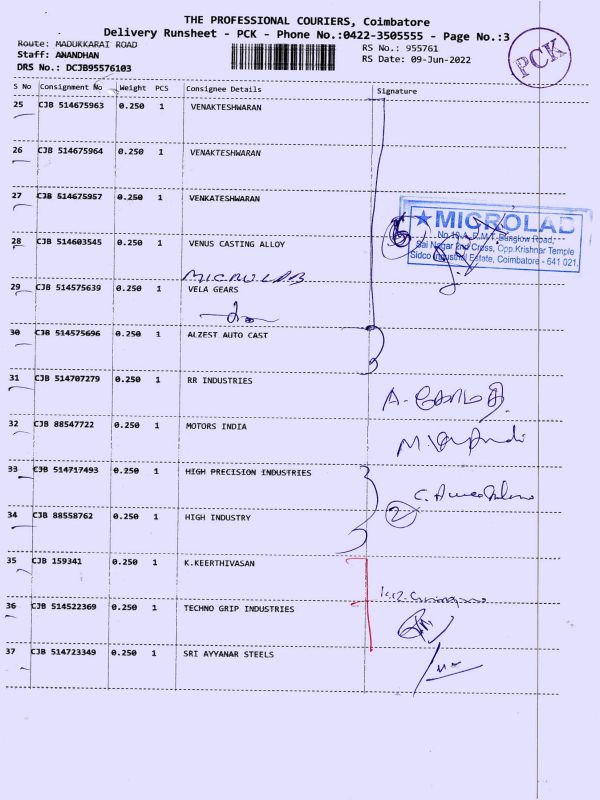 THE PROFESSIONAL COURIERS, Coimbatore
Delivery Runsheet - PCK - Phone No.:0422-3505555 - Page No.:3
Route: MADUKKARAI ROAD
RS No.: 955761
Staff: ANANDHAN
RS Date: 09-Jun-2022
DRS No.: DCJB95576103
PCK
S No Consignment No Weight PCS Consignee Details Signature
25 CJB 514675963 0.250 1 VENAKTESHWARAN
26 CJB 514675964 0.250 1 VENAKTESHWARAN
27 CJB 514675957 0.250 1 VENKATESHWARAN
28 CJB 514603545 0.250 1 VENUS CASTING ALLOY
6
★ MICROLAB
Sai Nagar 2nd Cross, Opp.Krishnar Temple
Sidco Industrial Estate, Coimbatore - 641 021.
MICROLAB
29 CJB 514575639 0.250 1 VELA GEARS
30 CJB 514575696 0.250 1 ALZEST AUTO CAST
31 CJB 514707279 0.250 1 RR INDUSTRIES
32 CJB 88547722 0.250 1 MOTORS INDIA
33 CJB 514717493 0.250 1 HIGH PRECISION INDUSTRIES
2
34 CJB 88558762 0.250 1 HIGH INDUSTRY
35 CJB 159341 0.250 1 K.KEERTHIVASAN
36 CJB 514522369 0.250 1 TECHNO GRIP INDUSTRIES
37 CJB 514723349 0.250 1 SRI AYYANAR STEELS